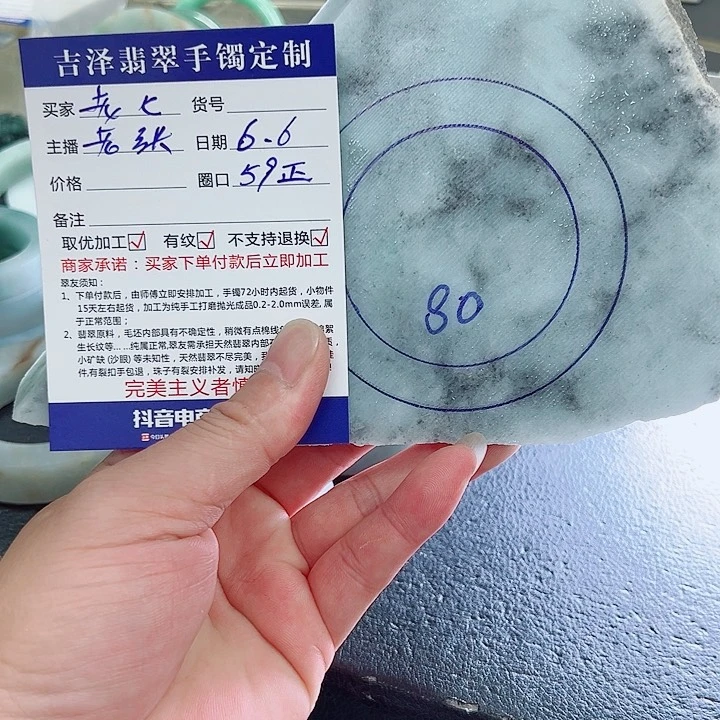 吉泽翡翠手镯定制
买家 老七 货号
主播 老张 日期 6.6
价格 圈口 59正
备注
取优加工☑ 有纹☑ 不支持退换☑
商家承诺：买家下单付款后立即加工
翠友须知：
1、下单付款后，由师傅立即安排加工，手镯72小时内起货，小物件
15天左右起货，加工为纯手工打磨抛光成品0.2-2.0mm误差，属
于正常范围；
2、翡翠原料，毛坯内部具有不确定性，稍微有点棉线
絮
生长纹等... ...纯属正常,翠友需承担天然翡翠内部
质，
小矿缺(沙眼)等未知性，天然翡翠不尽完美，
件,有裂扣手包退，珠子有裂安排补发，请知
！
完美主义者慎
抖音电
80